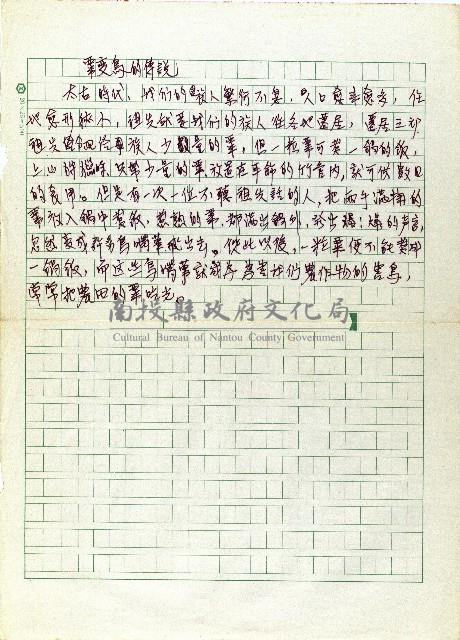 粟變鳥的傳說
太古時代，我們的族人繁衍不息，人口愈來愈多，住
地愈形狹小，祖先就要我們的族人往各地遷居，遷居之初
祖先曾分給每族人少數量的粟，但一粒粟可煮一鍋的飯，
上山狩獵時，只帶少量的粟放置在耳飾的竹管內，就可供數日
的食用。但是有一次一位不聽祖先話的人，把兩手滿捧的
粟放入鍋中煮飯，煮熟的粟，都溢出鍋外，發出
忽然變成許多鳥嘴筆飛出去。從此以後，一粒粟便不能煮成
一鍋飯，而这些鳥嘴筆就成為害我們農作物的害鳥，
常常把農田的粟吃光。
南投縣政府文化局
Cultural Bureau of Nantou County Government